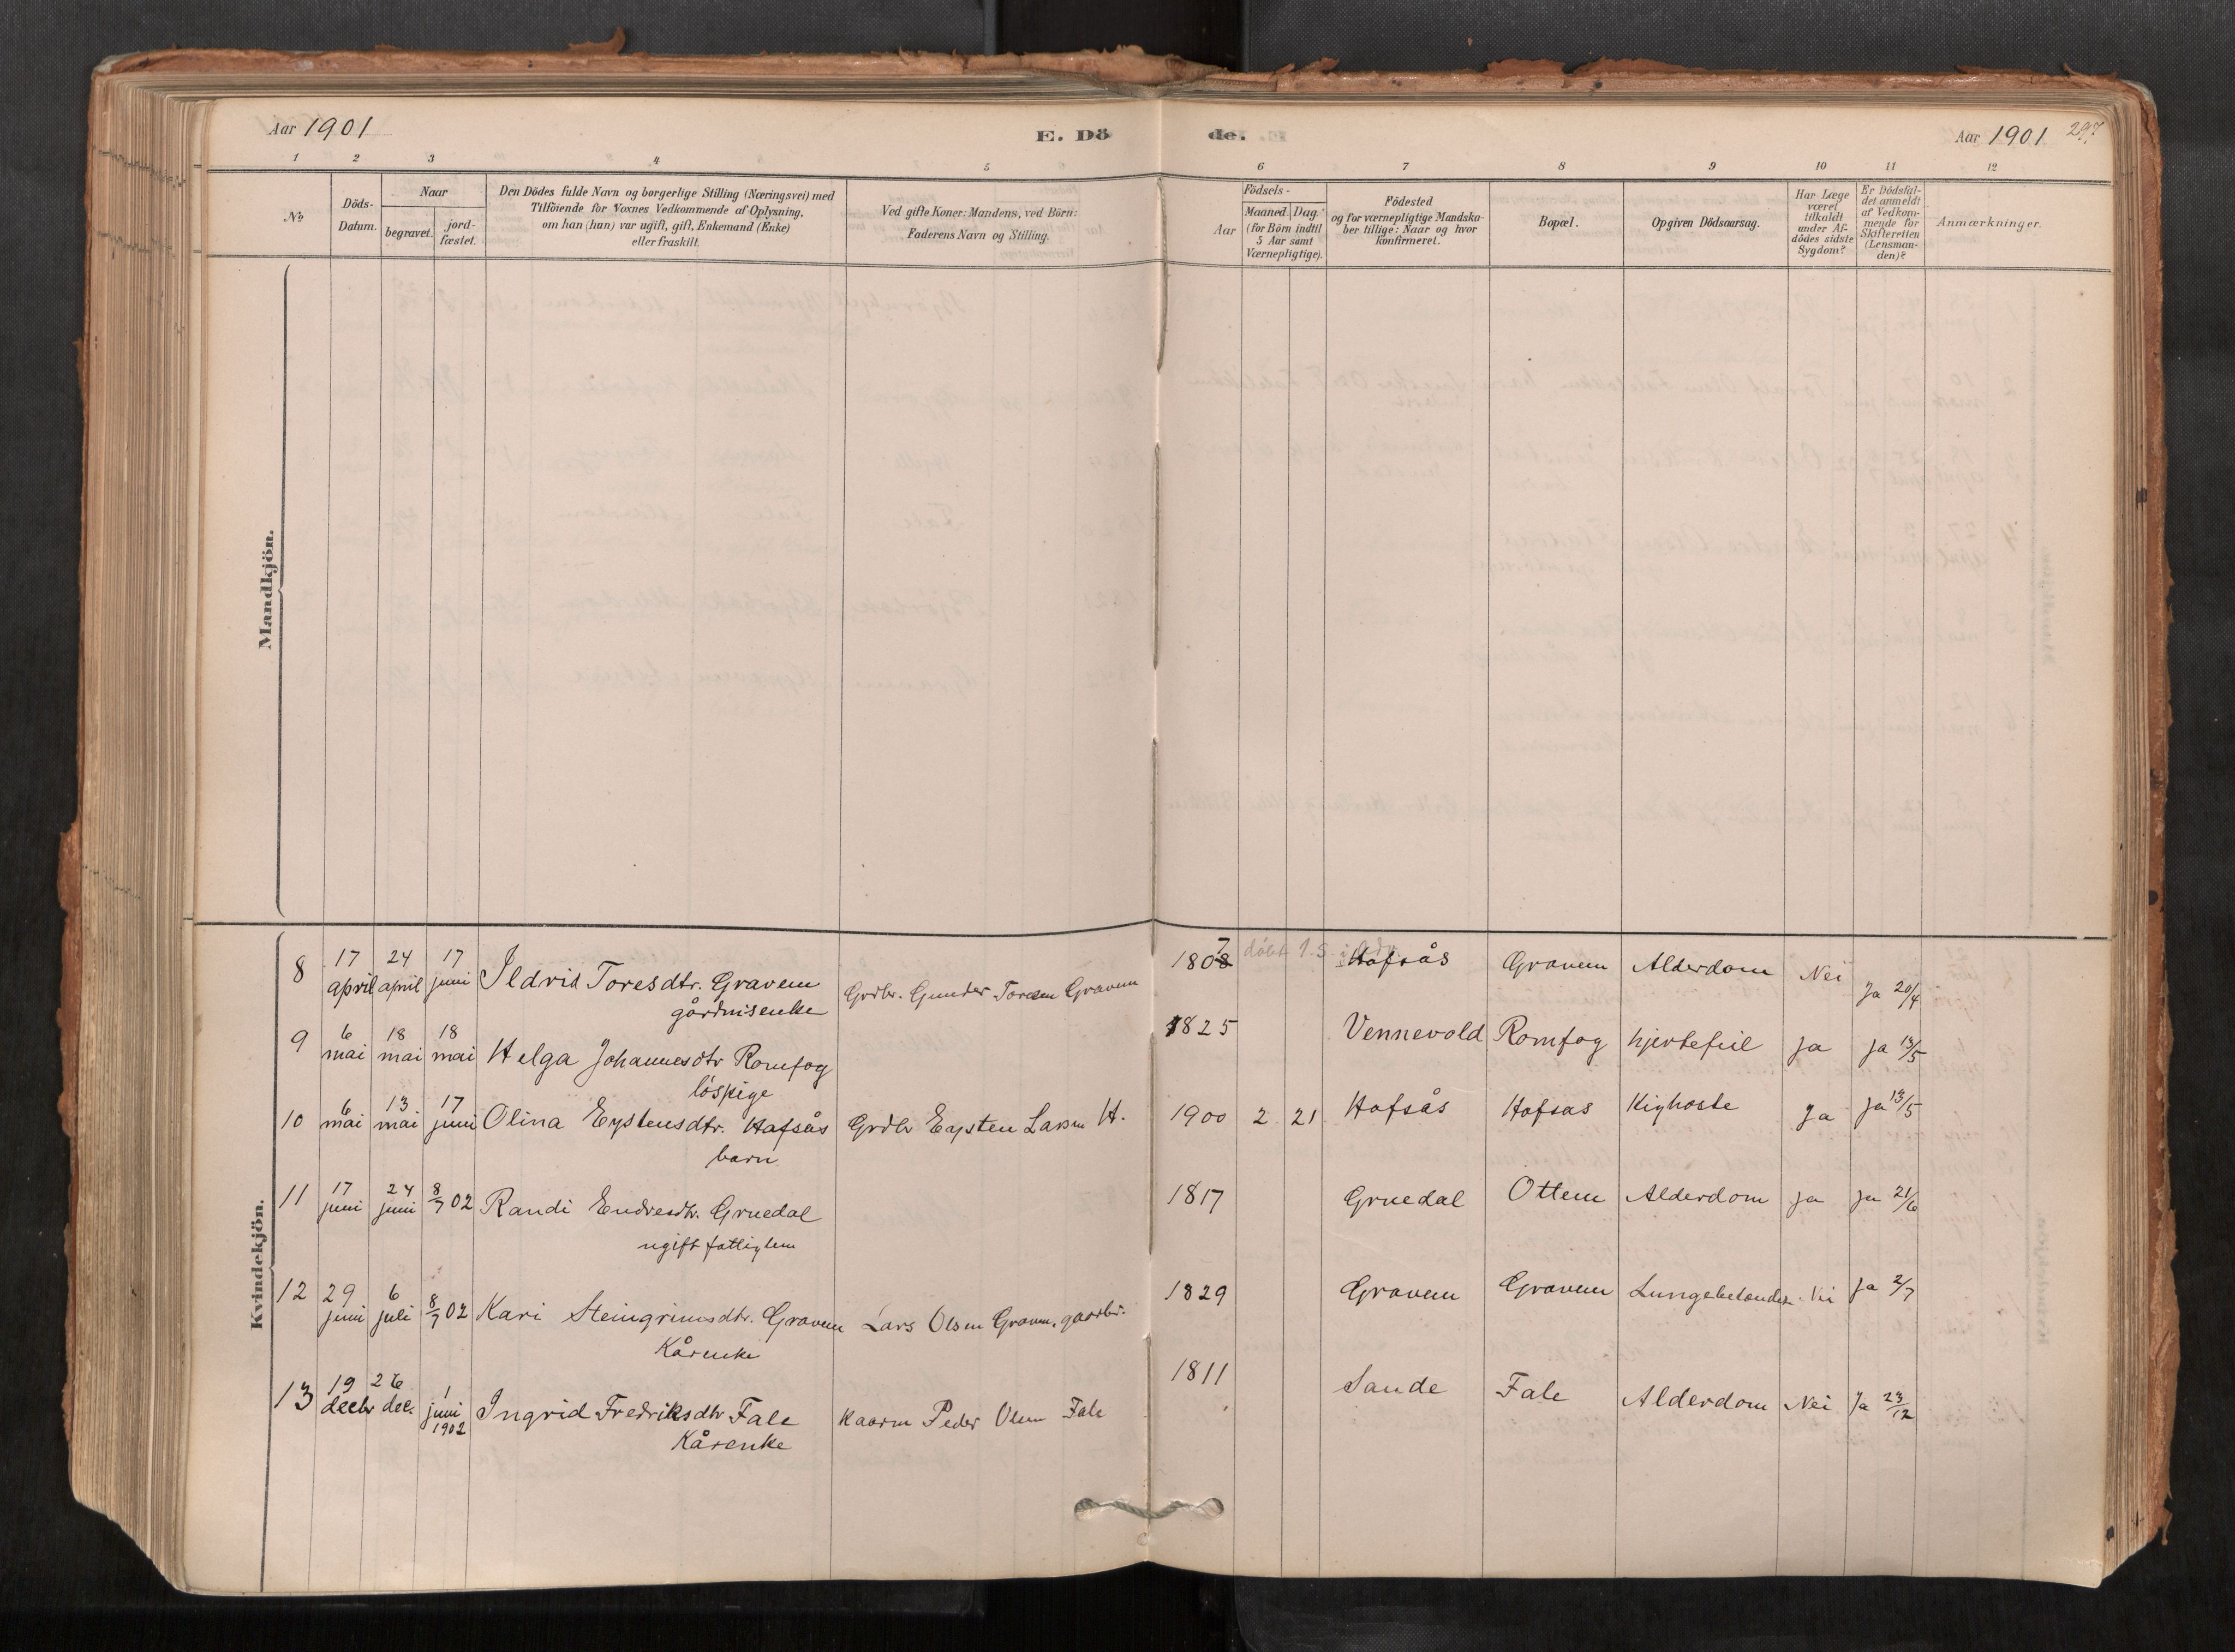 Aar 1901
E. Döde.
Aar 1901
297
1 2 3 4 5 6 7 8 9 10 11 12
No.
Döds-Datum.
Naar
begravet.
jord-fæstet.
Den Dödes fulde Navn og borgerlige Stilling (Næringsvei) med
Tilföiende for Voxnes Vedkommende af Oplysning,
om han (hun) var ugift, gift, Enkemand (Enke)
eller fraskilt.
Ved gifte Koner: Mandens, ved Börn:
Faderens Navn og Stilling.
Födsels-
Aar
Maaned. Dag.
(for Börn indtil
5 Aar samt
Værnepligtige).
Födested
og for værnepligtige Mandska-
ber tillige: Naar og hvor
konfirmeret.
Bopæl.
Opgiven Dödsaarsag.
Har Læge
været
tilkaldt
under Af-
dödes sidste
Sygdom?
Er Dödsfal-
det anmeldt
af Vedkom-
mende for
Skifteretten
(Lensman-
den)?
Anmærkninger.
Mandkjön.
Kvindekjön.
8 17 april 24 april 17 juni Ildrid Toresdtr. Gravem Grdbr. Gunder Toresen Gravem 1808 7 döbt 1. S. Hofsås Gravem Alderdom Nei Ja 20/4
gårdmisenke
9 6 mai 18 mai 18 mai Helga Johannesdtr Romfog 1825 Vennevold Romfog hjertefeil Ja Ja 13/5
löspige
10 6 mai 13 mai 17 juni Olina Eystensdtr. Hafsås Grdbr Eysten Larsen H. 1900 2 21 Hofsås Hofsas Kighoste Ja Ja 13/5
barn
11 17 juni 24 juni 8/7 02 Randi Endresdtr. Gruedal 1817 Gruedal Ottem Alderdom Ja Ja 21/6
ugift fattiglem
12 29 juni 6 juli 8/7 02 Kari Steingrimsdtr. Gravem Lars Olsen Gravem, gaardbr. 1829 Gravem Gravem Lungebetændelse Nei Ja 2/7
Kårenke
13 19 decbr 26 dec. 1 juni 1902 Ingrid Fredriksdtr Fale Kaarm Peder Olsen Fale 1811 Sande Fale Alderdom Nei Ja 23/12
Kårenke